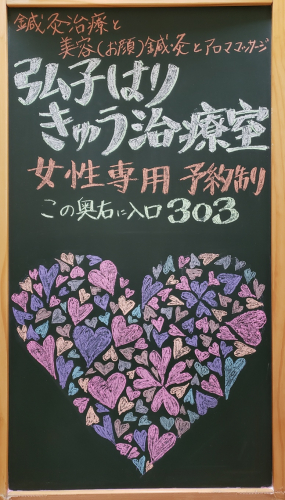 鍼灸治療と
美容(お顔)鍼灸とアロママッサージ
弘子はり
きゅう治療室
女性専用 予約制
この奥右に入口 303